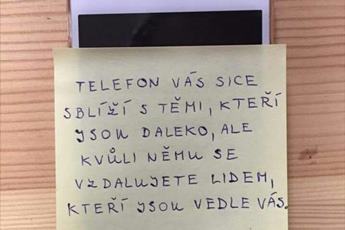 TELEFON VÁS SICE
SBLÍŽÍ S TĚMI, KTEŘÍ
JSOU DALEKO, ALE
KVŮLI NĚMU SE
VZDALUJETE LIDEM,
KTEŘÍ JSOU VEDLE VÁS.